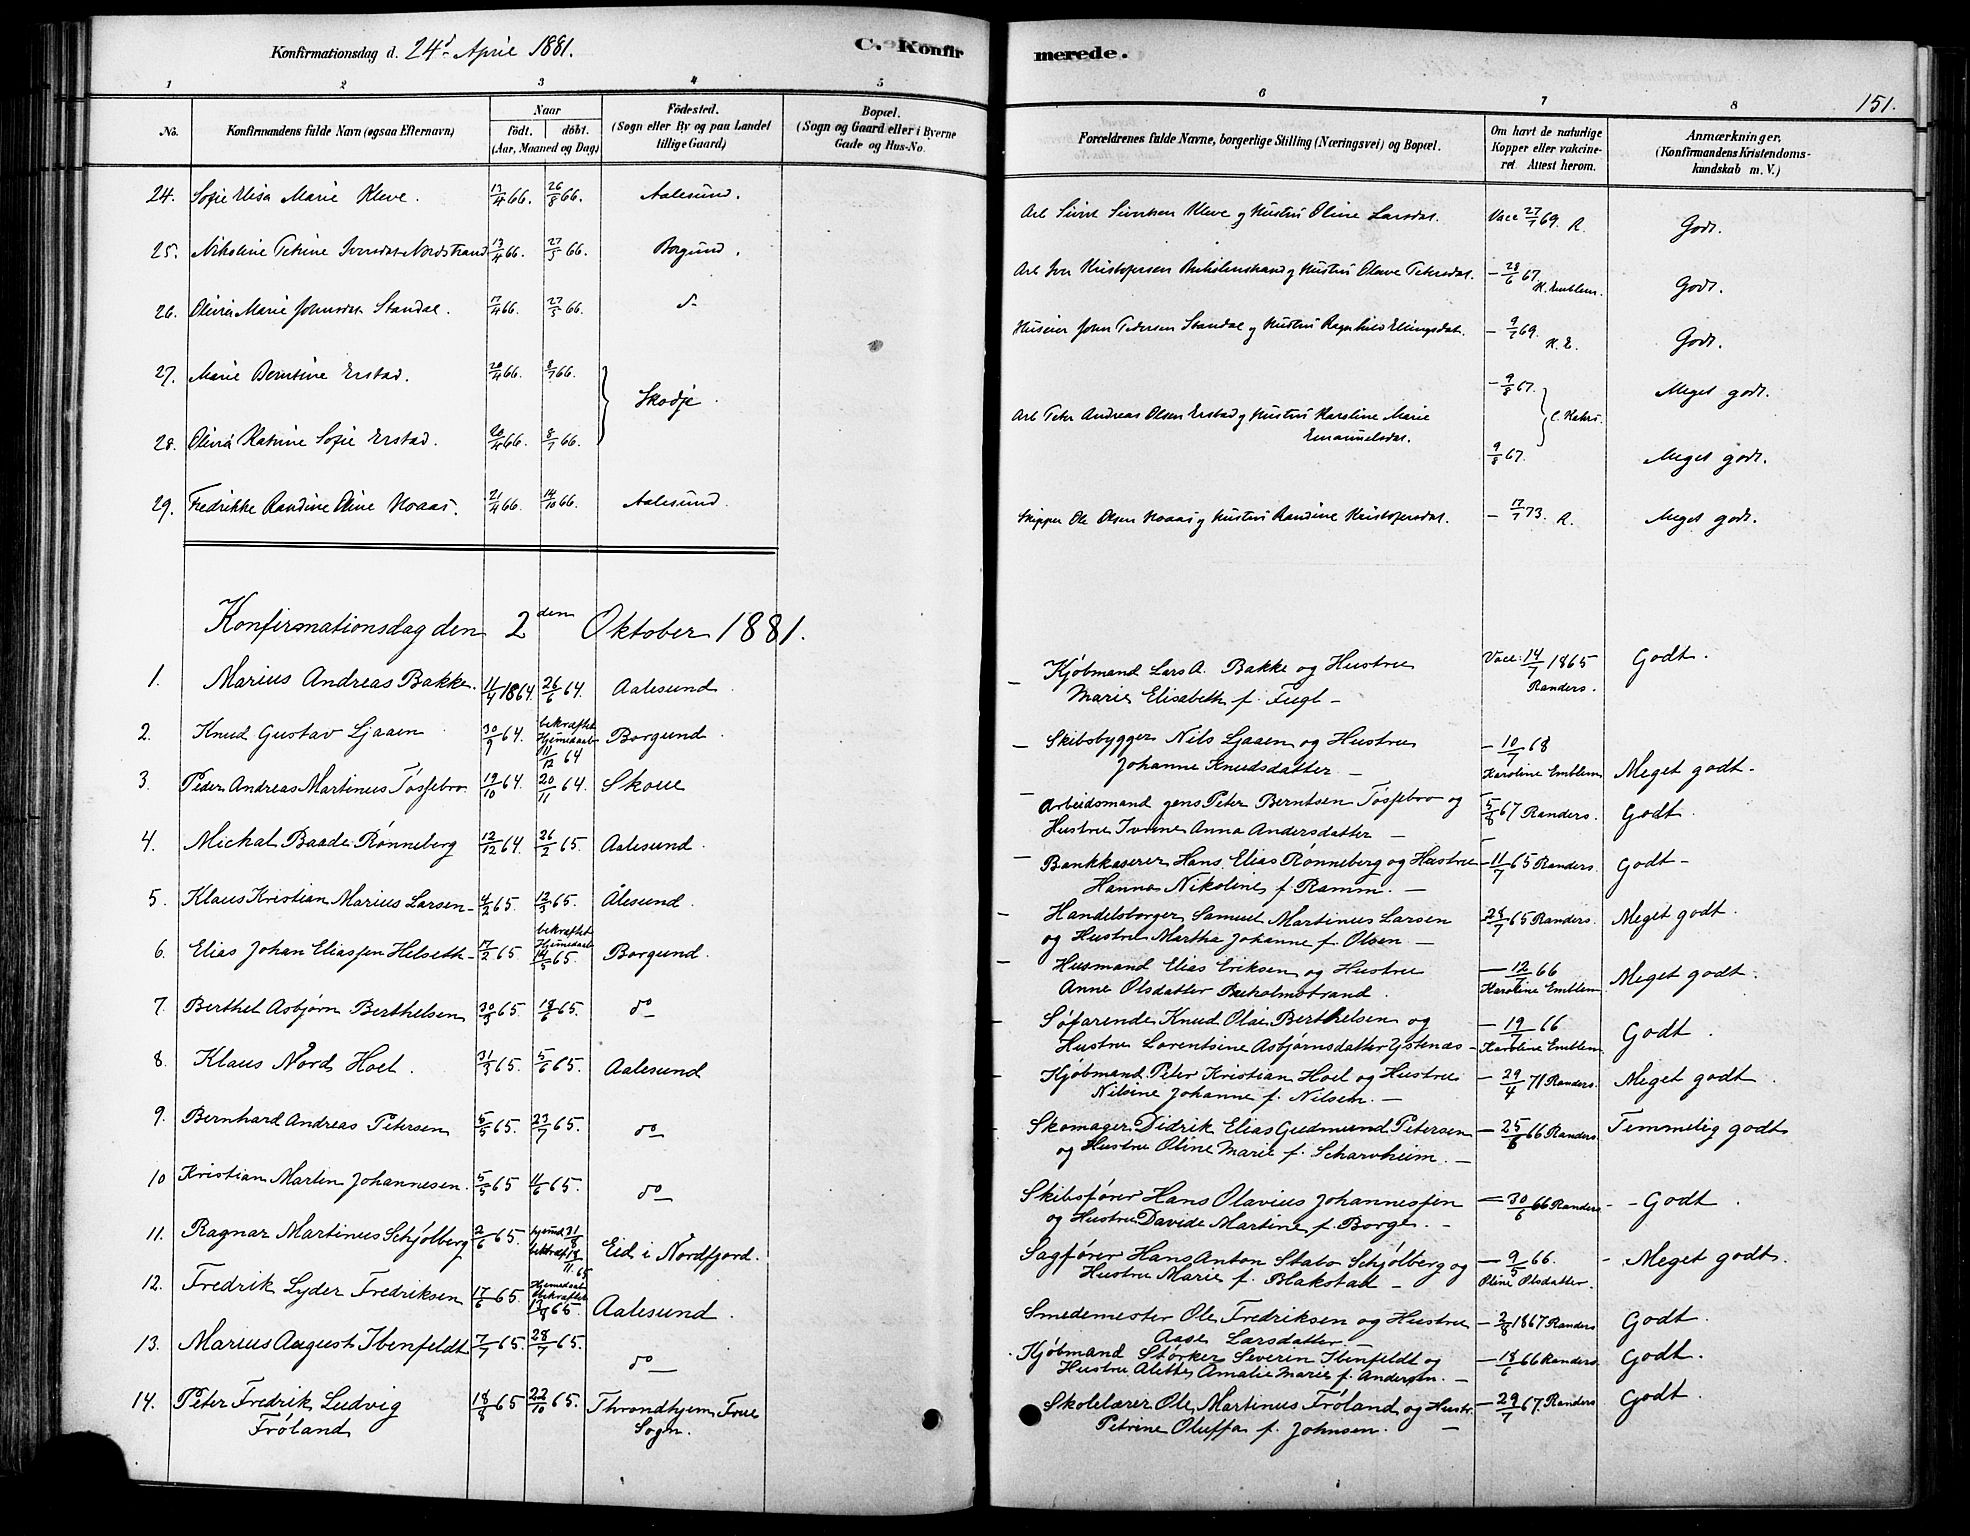 Konfirmationsdag d. 24' April 1881.
C. Konfir
merede.
151.
1 2 3 4 5 6 7 8
No. Konfirmandens fulde Navn (ogsaa Efternavn)
Naar
født. døbt.
(Aar, Maaned og Dag)
Fødested.
(Sogn eller By og paa Landet
tillige Gaard.)
Bopæl.
(Sogn og Gaard eller i Byerne
Gade og Hus-No.
Forældrenes fulde Navne, borgerlige Stilling (Næringsvei) og Bopæl.
Om havt de naturlige
Kopper eller vakcine-
ret. Attest herom.
Anmærkninger,
(Konfirmandens Kristendoms-
kundskab m. V.)
24. Sofie Marie Kleve. 13/4 66. 26/8 66. Aalesund. Kleve og Hustru Oline Larsdat. Vacc 27/7 69. R. Godt.
25. Nikoline Petrine Iversdat. Nordstrand 13/4 66. 27/5 66. Borgund. Arb. Iver Kristofersen og Hustru Olave Petersdat. – 28/6 67. K. Emblem. Godt.
26. Olivia Marie Johnsdat. Standal. 17/4 66. 27/5 66. do Huseier John Pedersen Standal og Hustru Ragnhild Ellingsdat. – 9/7 69. K. E. Godt.
27. Marie Berntine Erstad. 20/4 66. 8/7 66. – 9/8 67. Meget godt.
Skodje.
Arb. Peter Andreas Olsen Erstad og Hustru Karoline Marie
Emanuelsdat.
28. Olivia Katrine Sofie Erstad. 20/4 66. 8/7 66. 9/8 67. Meget godt.
29. Fredrikke Randine Oline Noaas. 21/4 66. 14/10 66. Aalesund. Skipper Ole Olsen Noaas og Hustru Randine Kristofersdat. – 17/7 73. R. Meget godt.
Konfirmationsdag den 2den Oktober 1881.
1. Marius Andreas Bakke. 11/4 1864. 26/6 64. Aalesund. – Kjøbmand Lars A. Bakke og Hustru
Marie Elisabeth f. Fugl – Vacc: 14/7 1865 Randers. Godt.
2. Knud Gustav Ljaaen 30/9 64. bekræftet Hjemedaab 11/12 64 Borgund. – Skibsbygger Nils Ljaaen og Hustru
Johanne Knudsdatter – – 10/7 68 Karoline Emblem Meget godt.
3. Peder Andreas Martinus Tøssebro 19/10 64. 20/11 64. Skoue – Arbeidsmand Jens Peter Berntsen Tøssebro og
Hustru Ivrine Anna Andersdatter – 5/8 67 Randers. Godt.
4. Michal Baade Rønneberg 12/12 64. 26/2 65. Aalesund. – Bankkaserer Hans Elias Rønneberg og Hustru
Hanna Nikoline f. Ramm. – – 11/7 65 Randers. Godt –
5. Klaus Kristian Marius Larsen – 4/2 65. 12/3 65. Ålesund. – Handelsborger Samuel Martinus Larsen
og Hustru Martha Johanne f. Olsen – 28/7 65 Randers. Meget godt.
6. Elias Johan Eliassen Helseth – 17/2 65. bekræftet Hjemedaab 14/5 65. Borgund. – Husmand Elias Eriksen og Hustru
Anne Olsdatter Buholmstrand. – 12/7 66 Karoline Emblem. Meget godt.
7. Berthel Asbjørn Berthelsen 30/3 65. 18/6 65. do – Søfarende Knud Olai Berthelsen og
Hustru Lorentsine Asbjørnsdatter Ystenæs – – 19/7 66 Karoline Emblem. Godt.
8. Klaus Nord Hoel. 31/3 65. 5/6 65. Aalesund – Kjøbmand Peter Kristian Hoel og Hustru
Nilsine Johanne f. Nilsen. – – 29/4 71 Randers. Meget godt.
9. Bernhard Andreas Petersen 5/5 65. 23/7 65. do Skomager Didrik Elias Gudmund Petersen
og Hustru Oline Marie f. Scharvheim. – – 25/6 66 Randers Temmelig godt
10 Kristian Martin Johannesen. 5/5 65 11/6 65. do Skibsfører Hans Olavius Johannessen
og Hustru Davide Martine f. Borge. – – 30/6 66 Randers – Godt.
11. Ragnar Martinus Schjølberg 2/6 65. hjemd. 31/8 bekræf. 13/11 65 Eid i Nordfjord. Sagfører Hans Anton Stabo Schjølberg og
Hustru Marie f. Blakstad – – 9/5 66. Oline Olsdatter. – Meget godt.
12. Fredrik Lyder Fredriksen 17/6 65. Hjemedaab bekræftet 13/8 65. Aalesund. Smedemester Ole Fredriksen og Hustru
Aase Larsdatter – 2/8 1867 Randers Godt.
13. Marius August Ibenfeldt 7/7 65. 28/7 65. do Kjøbmand Størker Severin Ibenfeldt og
Hustru Alette Amalie Marie f. Andersen. – – 18/6 66 Randers. Godt.
14. Peter Fredrik Ludvig
Frøland 18/8 65 22/10 65. Throndhjem Frue
Sogn. Skolelærer Ole Martinus Frøland og Hustr.
Petrine Oluffa f. Johnsen. – – 29/7 67. Randers Godt.